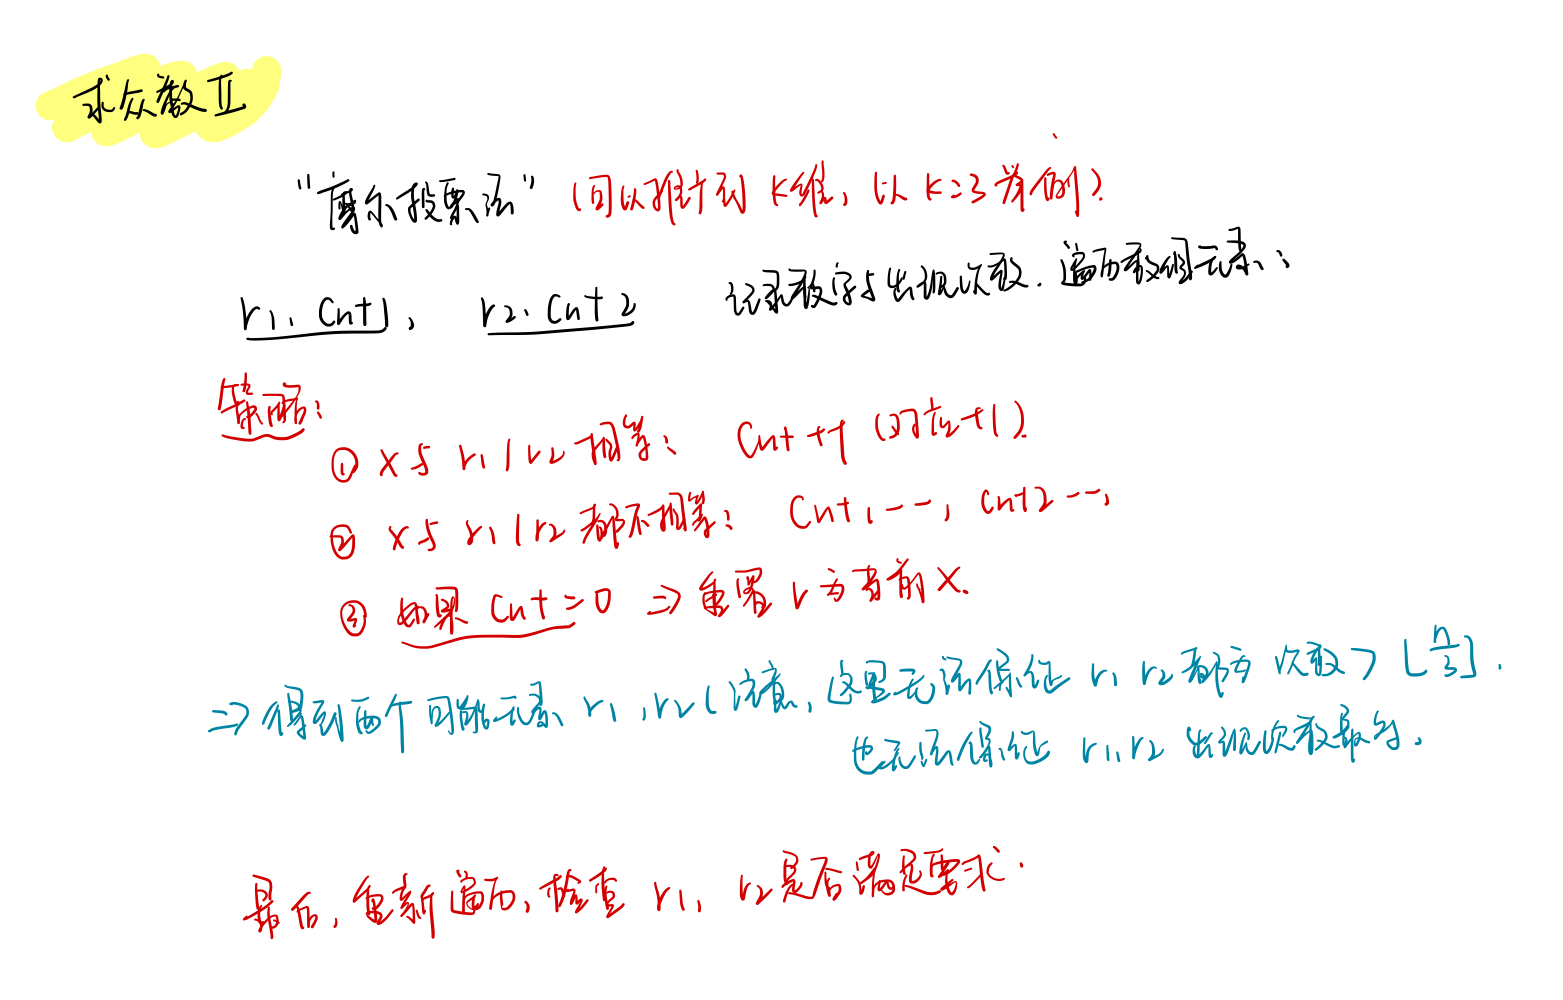 求众数 II
“摩尔投票法” (可以推广到 K维, 以 K=3 举例)
r1, Cnt1, r2, Cnt2 记录数字与出现次数. 遍历数组元素:
策略:
① x与 r1/r2 相等: Cnt++ (对应+1).
② x与 r1/r2 都不相等: Cnt1--, Cnt2--,
③ 如果 Cnt=0 ⇒ 重置 r 为当前 x.
⇒ 得到两个可能元素 r1, r2 (注意, 这里无法保证 r1 r2 都为 次数 > ⌊n/3⌋.
也无法保证 r1, r2 出现次数最多.
最后, 重新遍历, 检查 r1, r2是否满足要求.